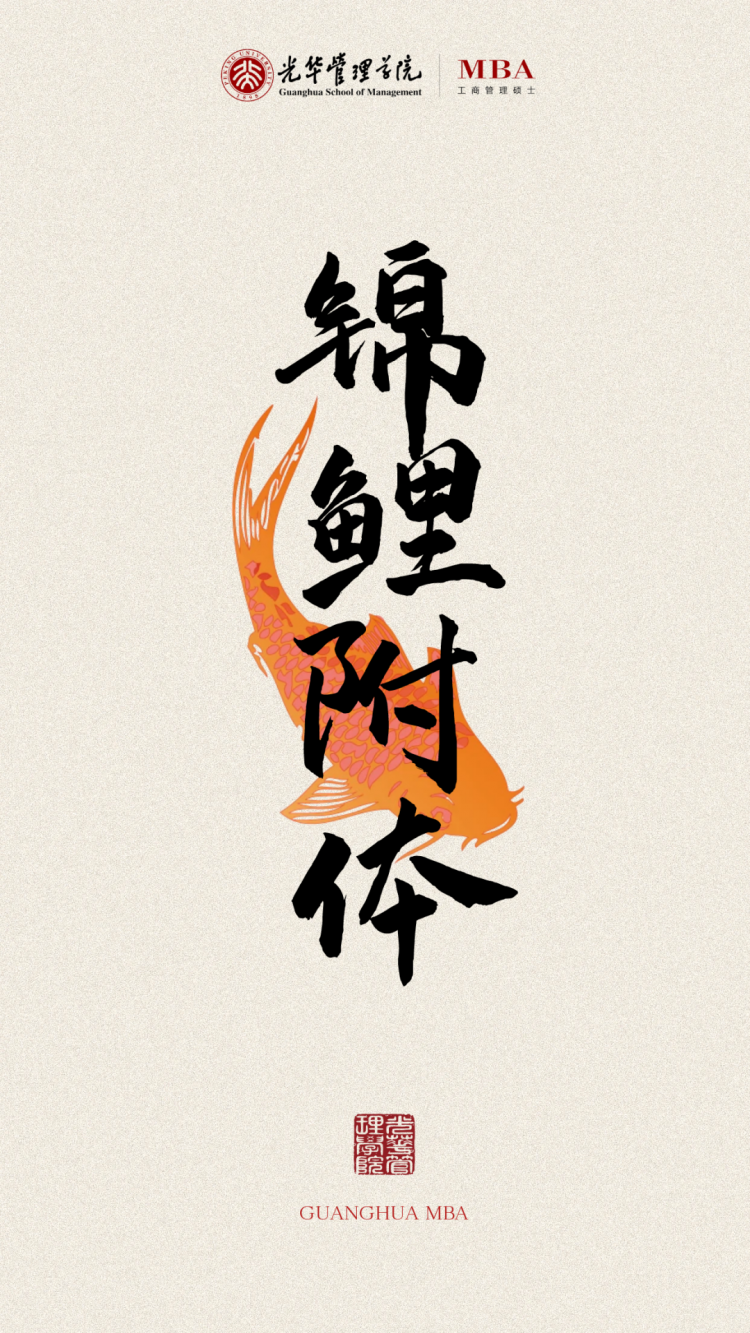 PEKING UNIVERSITY
1898
光华管理学院
Guanghua School of Management
MBA
工商管理硕士
锦鲤附体
光華管理學院
GUANGHUA MBA